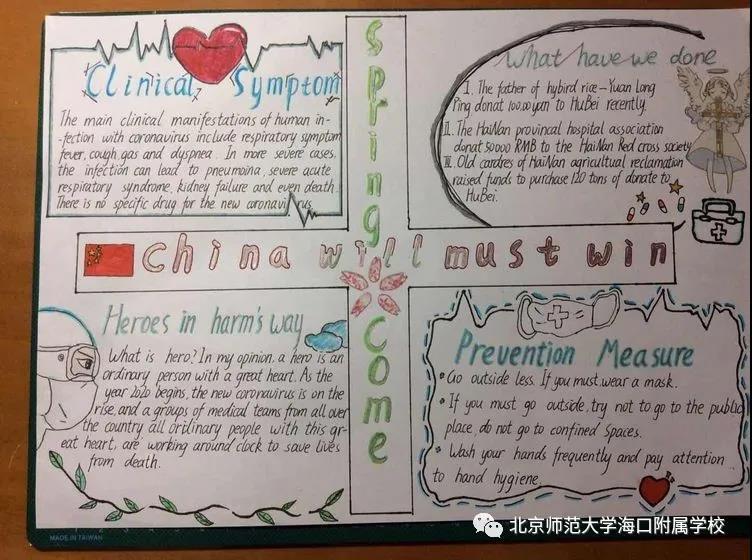 Clinical Symptom
The main clinical manifestations of human in-
-fection with coronavirus include respiratory symptom
fever, cough, gas and dyspnea. In more severe cases,
the infection can lead to pneumoina, severe acute
respiratory syndrome, kidney failure and even death.
There is no specific drug for the new coronavirus
spring
come
What have we done
I. The father of hybird rice—Yuan Long
Ping donat yuan to HuBei recently.
II. The HaiNan provincal hospital association
donat 50000 RMB to the HaiNan Red cross society
III. Old cardres of HaiNan agricultual reclamation
raised funds to purchase 120 tons of donate to
HuBei.
China will must win
Heroes in harm's way
What is hero? In my opinion, a hero is an
ordinary person with a great heart. As the
year 2020 begins, the new coronavirus is on the
rise, and a groups of medical teams from all over
the country all ordinary people with this gr-
eat heart, are working around clock to save lives
from death.
Prevention Measure
• Go outside less. If you must wear a mask.
• If you must go outside, try not to go to the public
place, do not go to confined spaces.
• Wash your hands frequently and pay attention
to hand hygiene.
MADE IN TAIWAN
北京师范大学海口附属学校